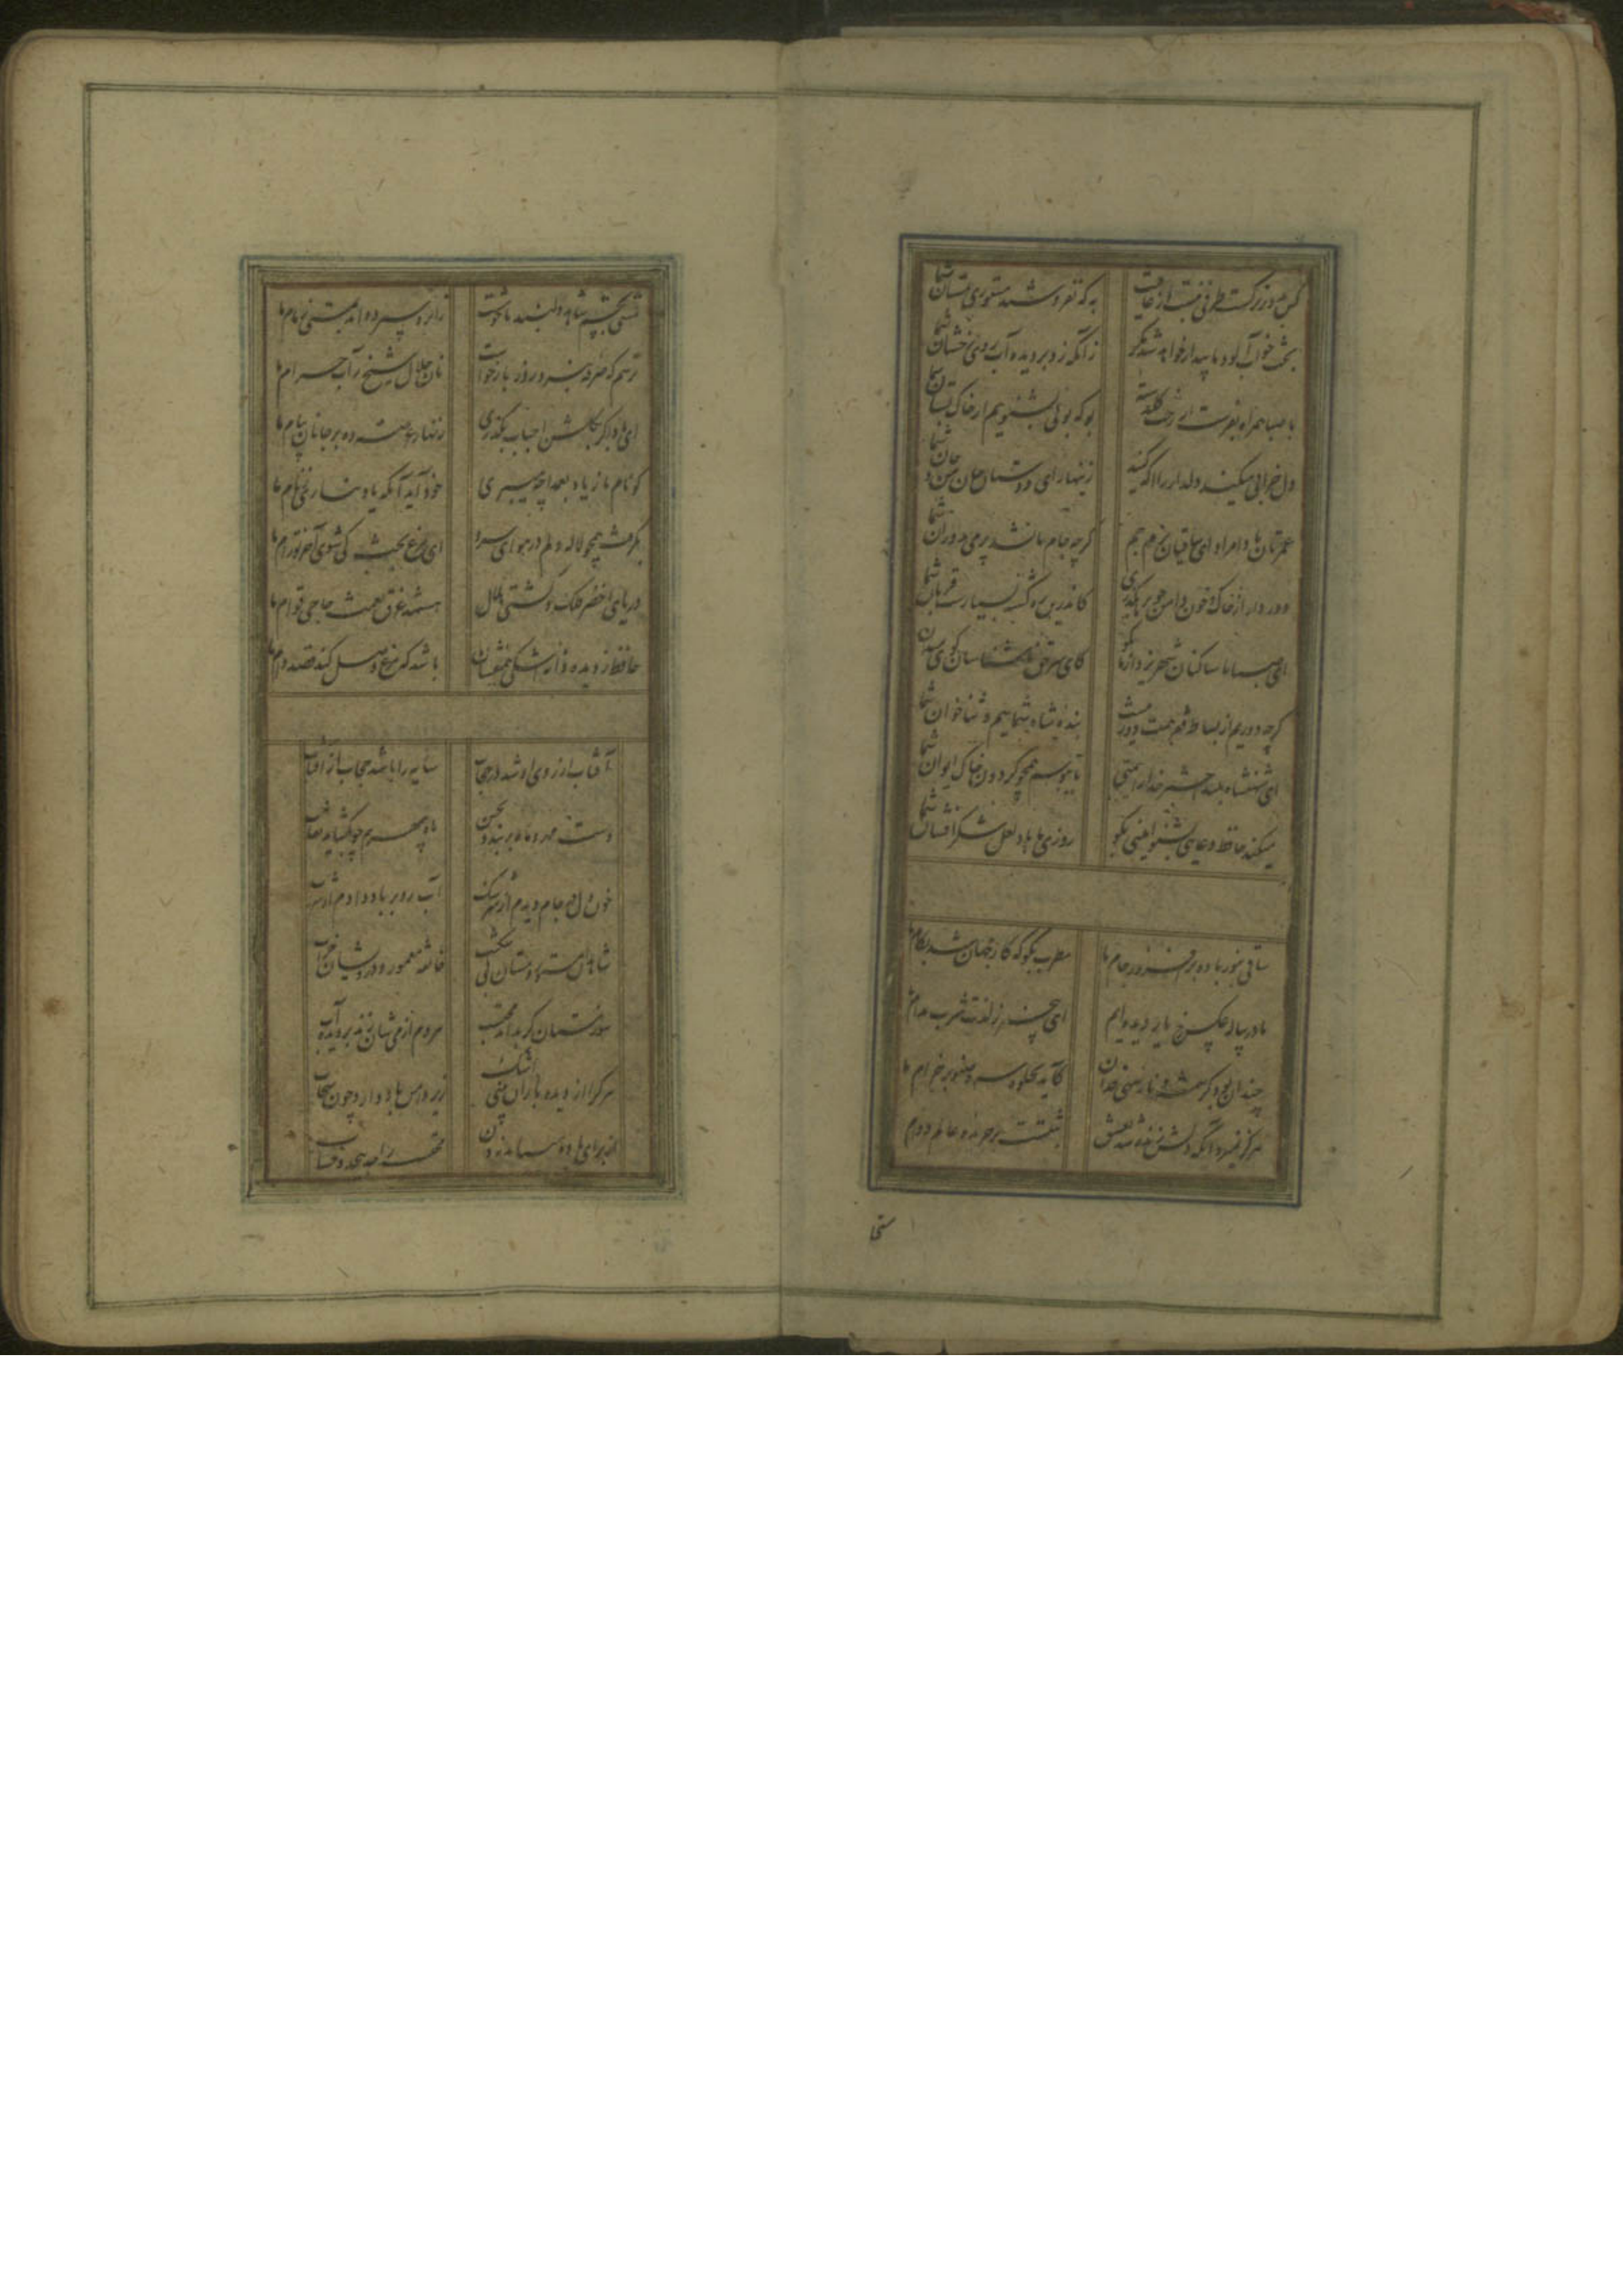 کس بدور نرگست طرفی نبست از عافیت به که نفروشند مستوری بمستان شما
بخت خواب آلود ما بیدار خواهد شد مگر زانکه زد بر دیده آب روی رخشان شما
با صبا همراه بفرست از رخت گلدسته بو که بویی بشنویم از خاک بستان شما
دل خرابی میکند دلدار را آگه کنید زینهار ای دوستان جان من و جان شما
عمرتان بادا مراد ای ساقیان بزم جم گرچه جام ما نشد پر می بدوران شما
دور دار از خاک و خون دامن چو بر ما بگذری کاندرین ره کشته بسیارند قربان شما
ای صبا با ساکنان شهر یزد از ما بگو کای سر حق ناشناسان گوی میدان شما
گرچه دوریم از بساط قرب همت دور نیست بنده شاه شماییم و ثناخوان شما
ای شهنشاه بلند اختر خدا را همتی تا ببوسم همچو گردون خاک ایوان شما
میکند حافظ دعایی بشنو امینی بگو روزی ما باد لعل شکر افشان شما
ساقی بنور باده برافروز جام ما مطرب بگو که کار جهان شد بکام ما
ما در پیاله عکس رخ یار دیده ایم ای بیخبر ز لذت شرب مدام ما
چندان بود کرشمه و ناز سهی قدان کاید بجلوه سرو صنوبر خرام ما
هرگز نمیرد آنکه دلش زنده شد بعشق ثبتست بر جریده عالم دوام ما
مستی بچشم شاهد دلبند ما خوشست زانرو سپرده اند بمستی زمام ما
ترسم که صرفه نبرد روز بازخواست نان حلال شیخ ز آب حرام ما
ای باد اگر بگلشن احباب بگذری زنهار عرضه ده بر جانان پیام ما
کو نام ما ز یاد بعمدا چه میبری خود آید آنکه یاد نیاری ز نام ما
بگرفت همچو لاله دلم در هوای سرو ای مرغ بخت کی شوی آخر تو رام ما
دریای اخضر فلک و کشتی هلال هستند غرق نعمت حاجی قوام ما
حافظ ز دیده دانه اشکی همی فشان باشد که مرغ وصل کند قصد دام ما
آفتاب از روی او شد در حجاب سایه را باشد حجاب از آفتاب
دست مهر و ماه بربندد بحسن ماه بی مهرم چو بگشاید نقاب
خون دل در جام دیدم از سرشک آب رو بر باد دادم
شاهدان مستور و مستان بی شکیب خانقه معمور و درویشان خراب
مردم از می شان نزند بر دیده آب
هر که را از دیده باران اشک زیر دامن باد دارد چون سحاب